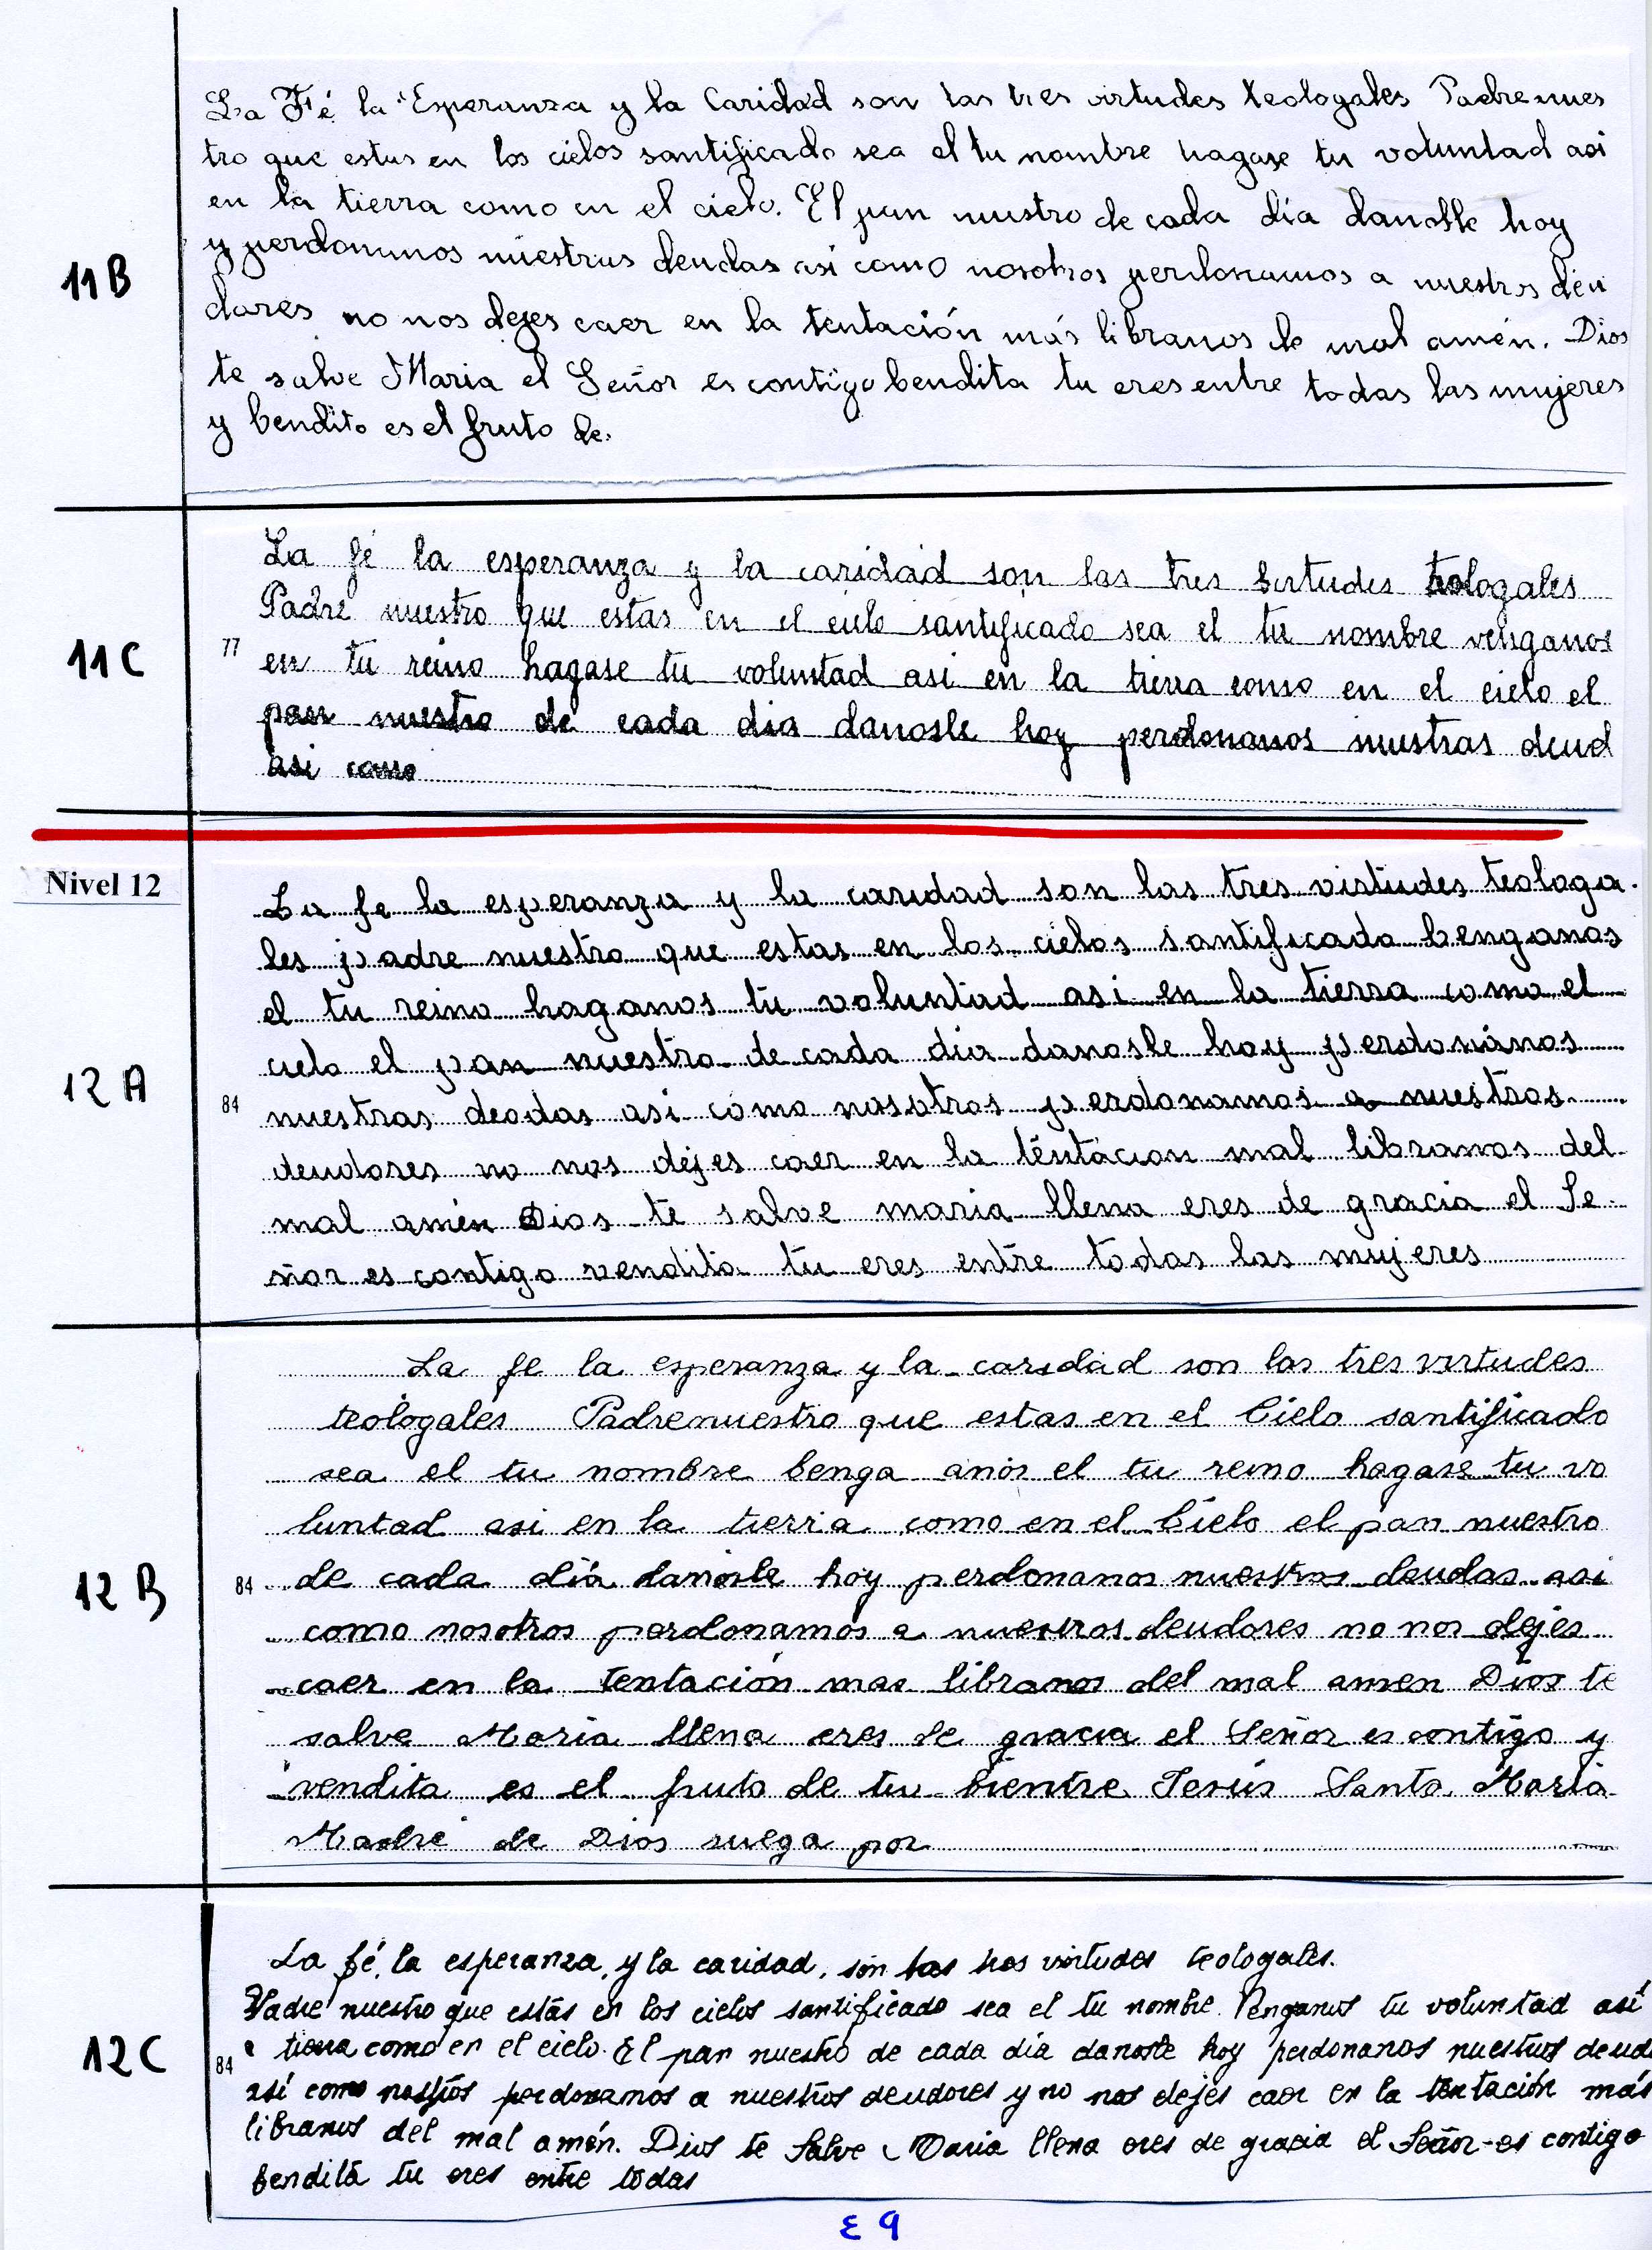 11B
La Fé la Esperanza y la Caridad son las tres virtudes teologales Padrenues
tro que estas en los cielos santificado sea el tu nombre hagase tu voluntad asi
en la tierra como en el cielo. El pan nuestro de cada día danosle hoy
y perdonanos nuestras deudas asi como nosotros perdonamos a nuestros deu
dores no nos dejes caer en la tentación más libranos de mal amén. Dios
te salve Maria el Señor es contigo bendita tu eres entre todas las mujeres
y bendito es el fruto de.
11C
La fé la esperanza y la caridad son las tres birtudes teologales
Padre nuestro que estas en el cielo santificado sea el tu nombre venganos
77 en tu reino hagase tu voluntad asi en la tierra como en el cielo el
pan nuestro de cada dia danosle hoy perdonanos nuestras deud
asi como
Nivel 12
12A
La fe la esperanza y la caridad son las tres virtudes teologa.
les padre nuestro que estas en los cielos santificado benganos
el tu reino haganos tu voluntad asi en la tierra como el
cielo el pan nuestro de cada dia danosle hoy perdonános
84 nuestras deodas asi como nosotros perdonamos a nuestros
deudores no nos dejes caer en la téntacion mal libranos del
mal amén Dios te salve maria llena eres de gracia el Se-
ñor es contigo vendita tu eres entre todas las mujeres
12B
La fe la esperanza y la caridad son las tres virtudes
teologales Padrenuestro que estas en el Cielo santificado
sea el tu nombre benga anos el tu reino hagase tu vo
luntad asi en la tierra como en el Cielo el pan nuestro
84 de cada día danosle hoy perdonanos nuestras deudas asi
como nosotros perdonamos a nuestros deudores no nos dejes
caer en la tentación mas libranos del mal amen Dios te
salve Maria llena eres de gracia el Señor es contigo y
vendita es el fruto de tu bientre Jesús Santa María
Madre de Dios ruega por
12C
La fé, la esperanza, y la caridad, son las tres virtudes teologales.
Padre nuestro que estás en los cielos santificado sea el tu nombre. Venganos tu voluntad así
84 tierra como en el cielo. El pan nuestro de cada día danosle hoy perdonanos nuestras deud
así como perdonamos a nuestros deudores y no nos dejes caer en la tentación más
libranos del mal amén. Dios te Salve Maria llena eres de gracia el Señor es contigo
bendita tu eres entre todas
E 9